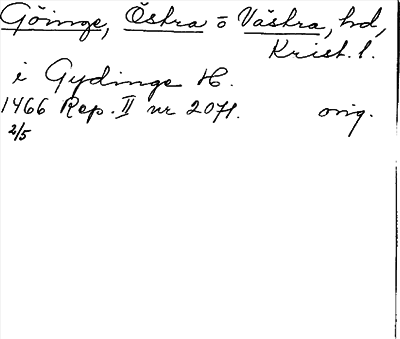 Göinge, Östra o Västra, hd,
Krist. l.
i Gydinge H.
1466 Rep. II nr 2071. orig.
2/5